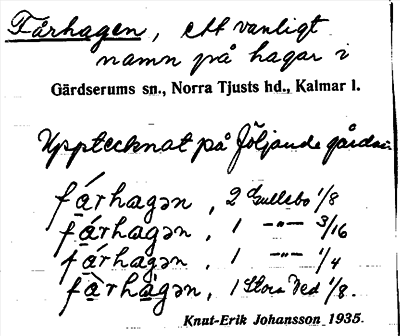 Fårhagen, ett vanligt
namn på hagar i
Gärdserums sn., Norra Tjusts hd., Kalmar l.
Upptecknat på följande gårdar:
fárhagən, 2 Gullebo 1/8
fárhagən, 1 -"- 3/16
fárhagən, 1 -"- 1/4
fàrhàgən, 1 Stora Ved 1/8.
Knut-Erik Johansson 1935.